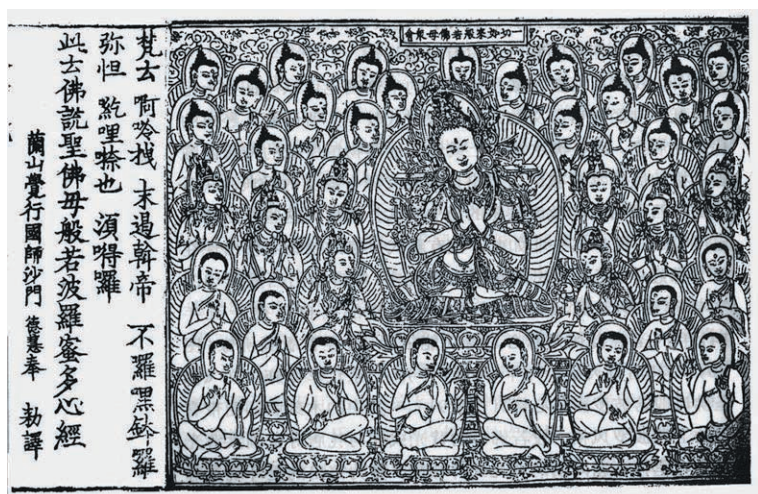 一切如來般若佛母眾會
梵云 啊唥拽 末遏斡帝 不囉嘿鉢囉
弥怛 紇哩嚓也 須嘚囉
此云佛說聖佛母般若波羅蜜多心經
蘭山覺行國師沙門 德慧奉 勑譯